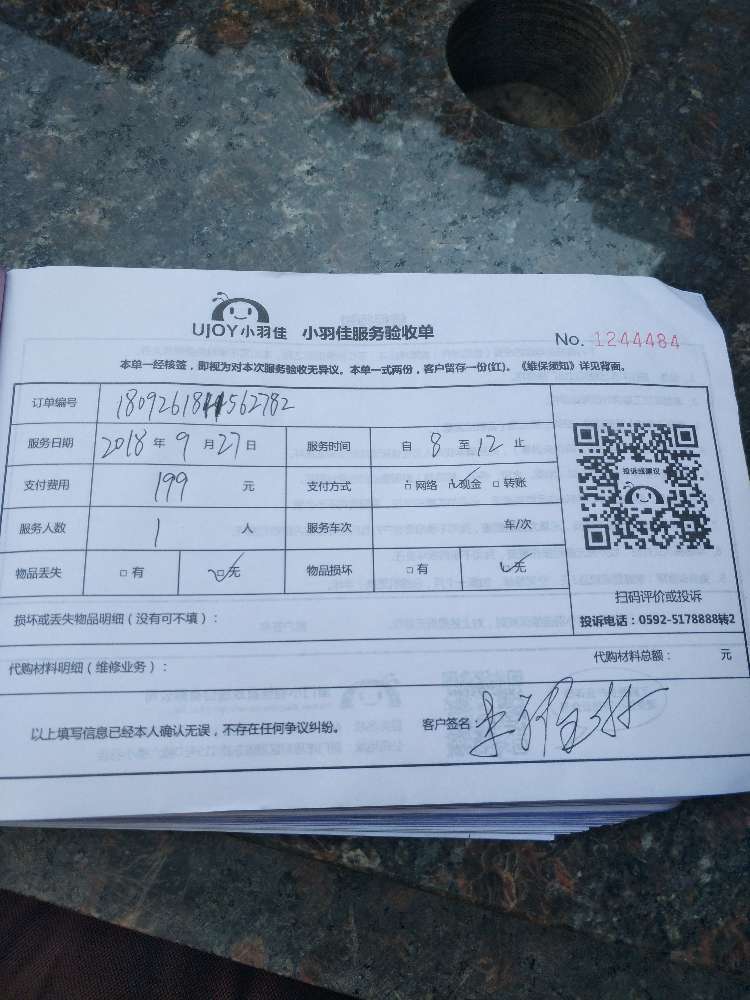 UJOY小羽佳 小羽佳服务验收单
No. 1244484
本单一经核签，即视为对本次服务验收无异议。本单一式两份，客户留存一份(红)。《维保须知》详见背面。
订单编号
服务日期 2018 年 9 月 27 日 服务时间 自 8 至 12 止
支付费用 199 元 支付方式 □ 网络 □ 现金 □ 转账
服务人数 1 人 服务车次 车/次
物品丢失 □ 有 □ 无 物品损坏 □ 有 □ 无
投诉或建议
扫码评价或投诉
投诉电话：0592-5178888转2
损坏或丢失物品明细（没有可不填）：
代购材料明细（维修业务）： 代购材料总额： 元
以上填写信息已经本人确认无误，不存在任何争议纠纷。 客户签名：